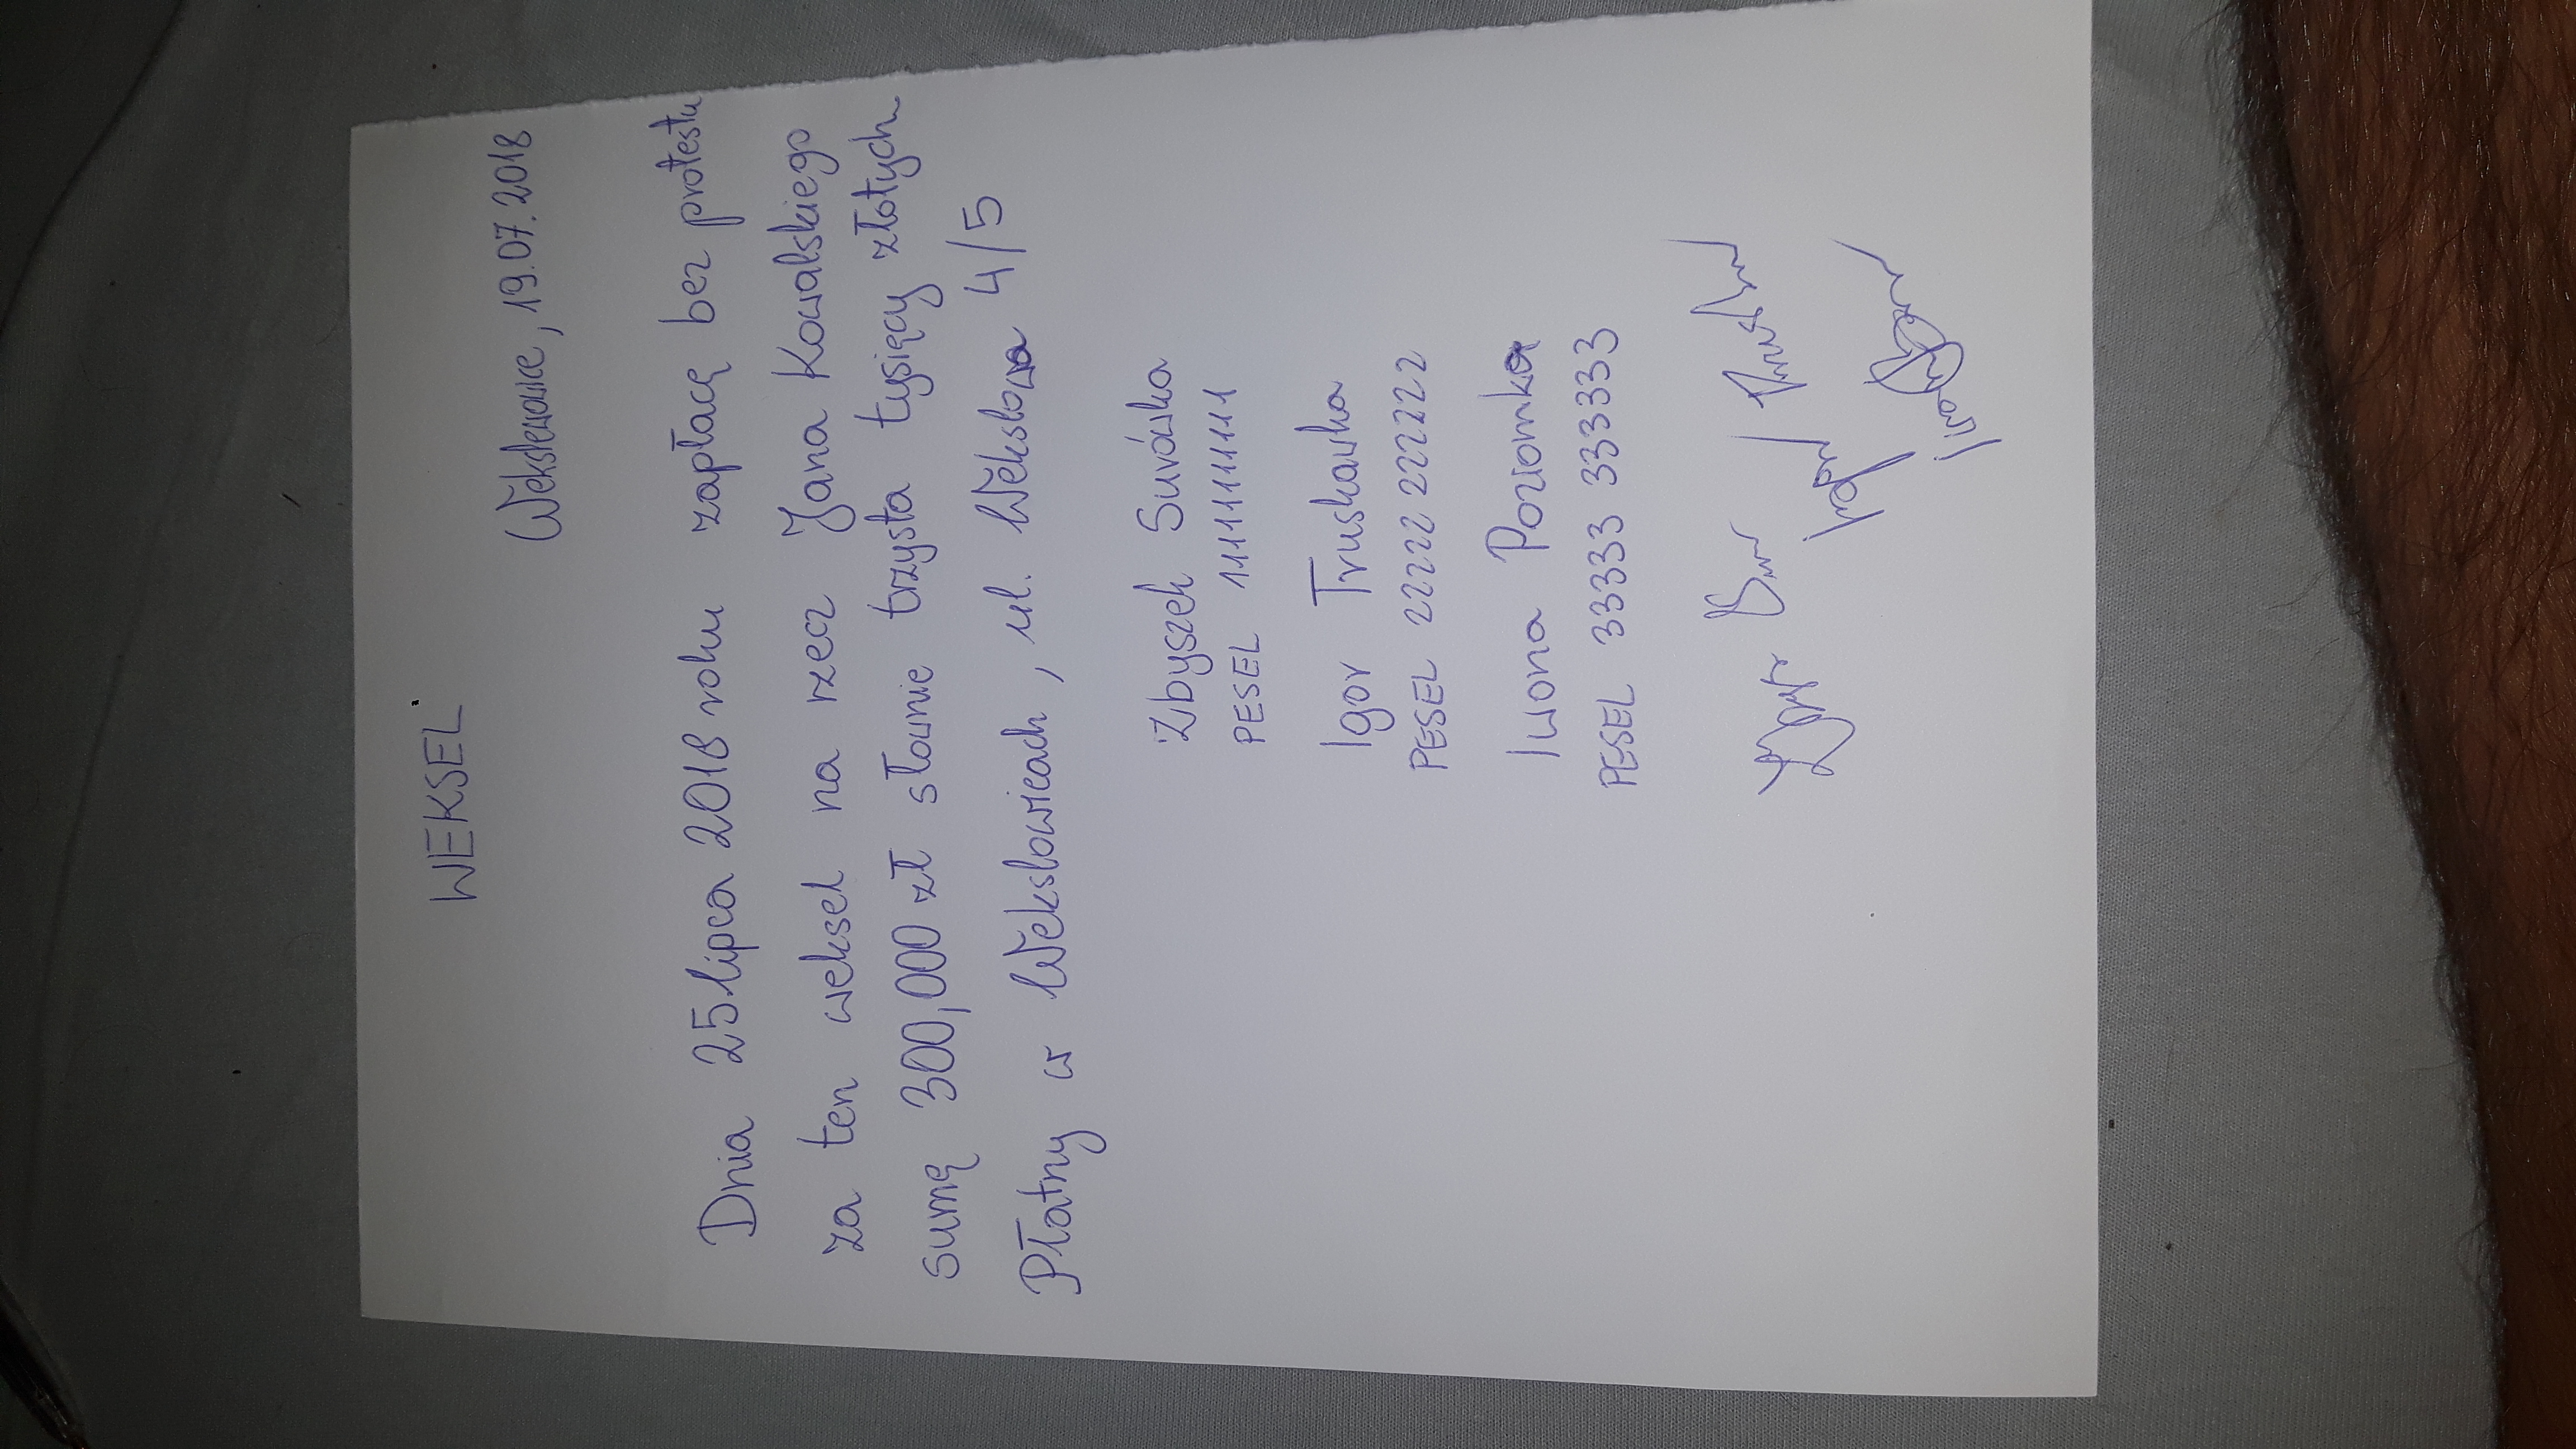 WEKSEL
Wekslewowice, 19.07.2018
Dnia 25 lipca 2018 roku zapłacę bez protestu
za ten weksel na rzecz Jana Kowalskiego
sumę 300,000 zł słownie trzysta tysięcy złotych
Płatny w Wekslowicach, ul. Wekslowa 4/5
Zbyszek Surówka
PESEL 11111111111
Igor Truskawka
PESEL 22222 222222
Iwona Poziomka
PESEL 33333 333333
Igor
Iwona